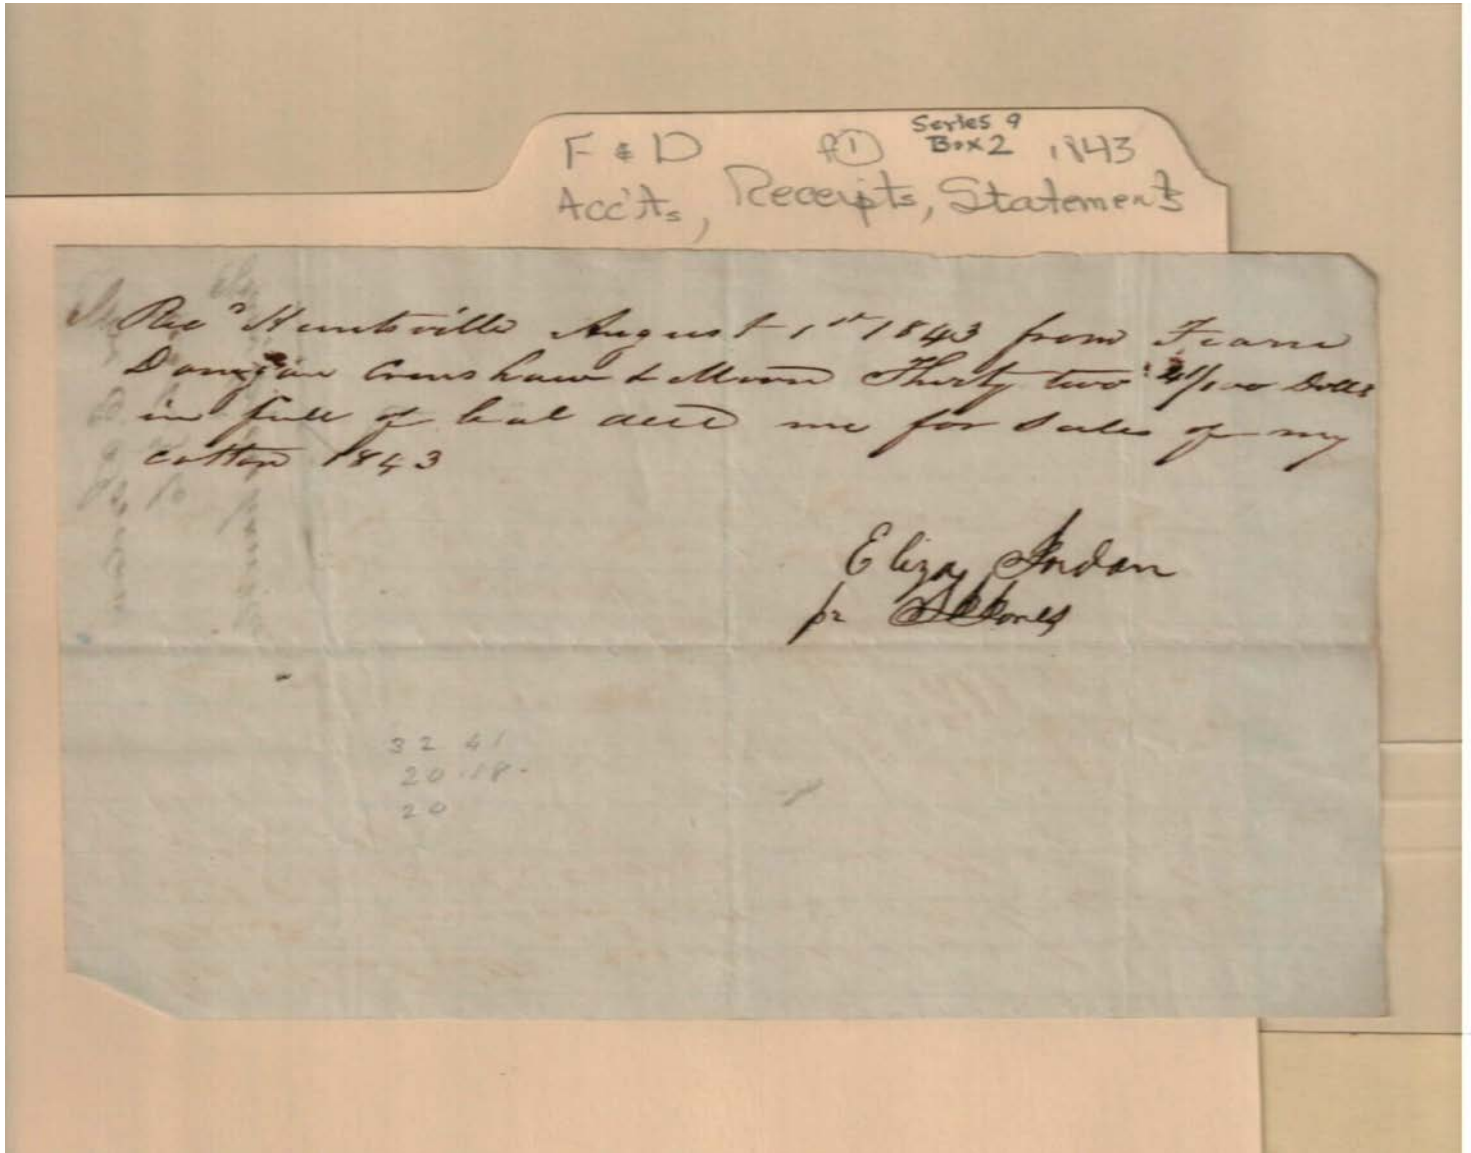 F & D f① Series 9 Box 2 1843
Acc'ts, Receipts, Statements
Recd Huntsville August 1st 1843 from Fearn
Donegan Crenshaw & Moon Thirty two 41/100 Dolls
in full of bal due me for Sales of my
cotton 1843
Eliza Jordan
pr Jones
32 41
20 18
20